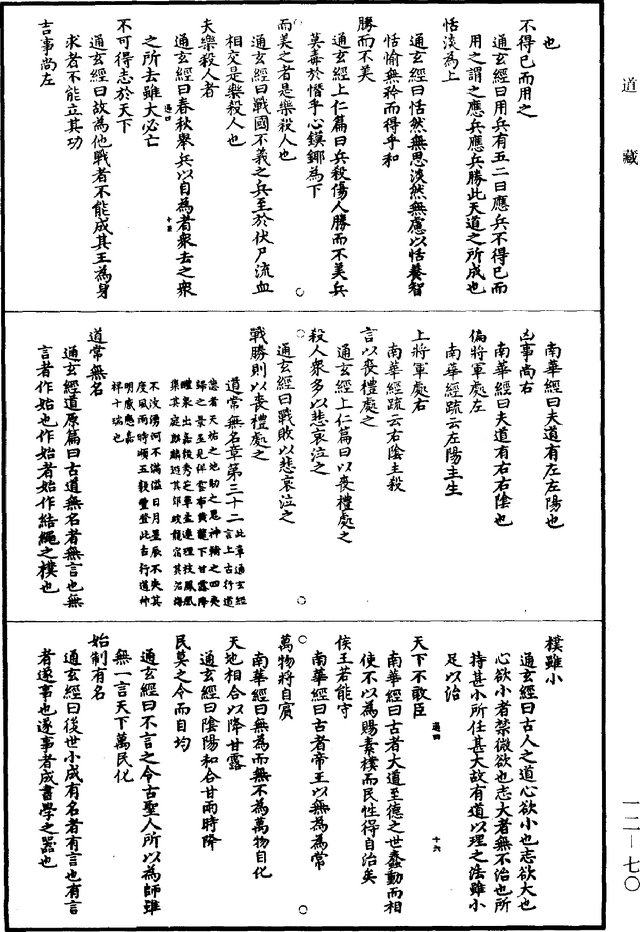 道藏
也
不得已而用之
通玄經曰用兵有五二曰應兵不得已而
用之謂之應兵應兵勝此天道之所成也
恬淡為上
通玄經曰恬然無思淡然無慮以恬養智
恬愉無矜而得乎和
勝而不美
通玄經上仁篇曰兵殺傷人勝而不美兵
莫毒於憯乎心鏌鎁為下
而美之者是樂殺人也
通玄經曰戰國不義之兵至於伏尸流血
相交是樂殺人也
夫樂殺人者
通玄經曰春秋舉兵以自為者衆去之衆
之所去雖大必亡
不可得志於天下
通玄經曰故為他戰者不能成其王為身
求者不能立其功
吉事尚左
南華經曰夫道有左左陽也
凶事尚右
南華經曰夫道有右右陰也
偏將軍處左
南華經疏云左陽主生
上將軍處右
南華經疏云右陰主殺
言以喪禮處之
通玄經上仁篇曰以喪禮處之
殺人衆多以悲哀泣之
通玄經曰戰敗以悲哀泣之
戰勝則以喪禮處之
道常無名章第三十二此章通玄經
言上古行道
德者天祐之地助之鬼神輔之四夷
歸之景星見祥雲布黃龍下甘露降
醴泉出嘉穀秀芝草生連理枝鳳凰
集其庭麒麟遊其郊蛟龍宿其沼海
不波湧河不滿溢日月星辰不失其
度風雨時順五穀豐登此古行道神
明感應嘉
祥十瑞也
道常無名
通玄經道原篇曰古道無名者無言也無
言者作始也作始者始作結繩之樸也
樸雖小
通玄經曰古人之道心欲小也志欲大也
心欲小者禁微欲也志大者無不治也所
持甚小所任甚大故有道以理之法雖小
足以治
天下不敢臣
南華經曰古者大道至德之世蠢動而相
使不以為賜素樸而民性得自治矣
侯王若能守
南華經曰古者帝王以無為為常
萬物將自賓
南華經曰無為而無不為萬物自化
天地相合以降甘露
通玄經曰陰陽和合甘雨時降
民莫之令而自均
通玄經曰不言之令古聖人所以為師雖
無一言天下萬民化
始制有名
通玄經曰後世小成有名者有言也有言
者遂事也遂事者成書學之器也
一二—七〇